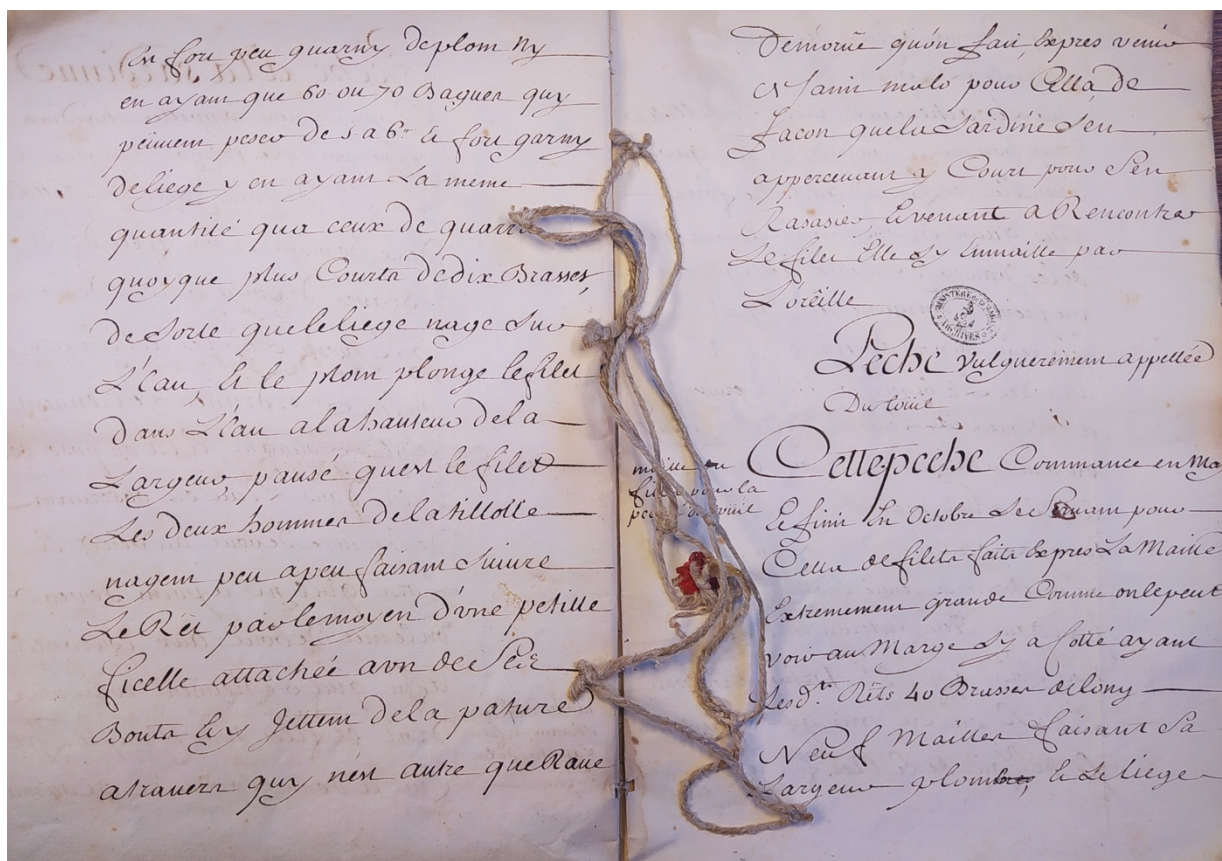 Est fort peu guarny de plom Ny
en ayant que 60 ou 70 Bagues quy
peuvent peser de 5 a 6ll et fort garny
de liege y en ayant La meme
quantité qua ceux de quarré
quoy que plus Courts de dix Brasses,
de Sorte que le liege nage Sur
L'Eau Et le plom plonge le filet
dans L'Eau a la hauteur de la
Largeur pausé quest le filet
Les deux hommes de la tillolle
nagent peu a peu faisant Suivre
Le Rêt par le moyen d'une petitte
ficelle attachée a un de Ses
Bouts Et y Jettent de la pature
a travers quy n'est autre que Rave
De morüe qu'on fait Expres venir
St Saint malo pour Cella, de
facon que la Sardine S'en
appercevant y Court pour S'en
Rasasier, Et venant a Rencontrer
Le filet Elle Sy Enmaille par
L'orëille
MINISTERE DE LA MARINE ARCHIVES
Peche Vulguerement appellée
Du
maille du
filet pour la
peche du
Cette peche Commance en May
Et finit En Octobre Se Servant pour
Cella de filets faits Expres La Maille
Extremement grande Comme on le peut
voir au Marge Sy a Cotté ayant
Les dts Rêts 40 Brasses de long
Neuf Mailles faisant Sa
Largeur plombes, Et Le liege